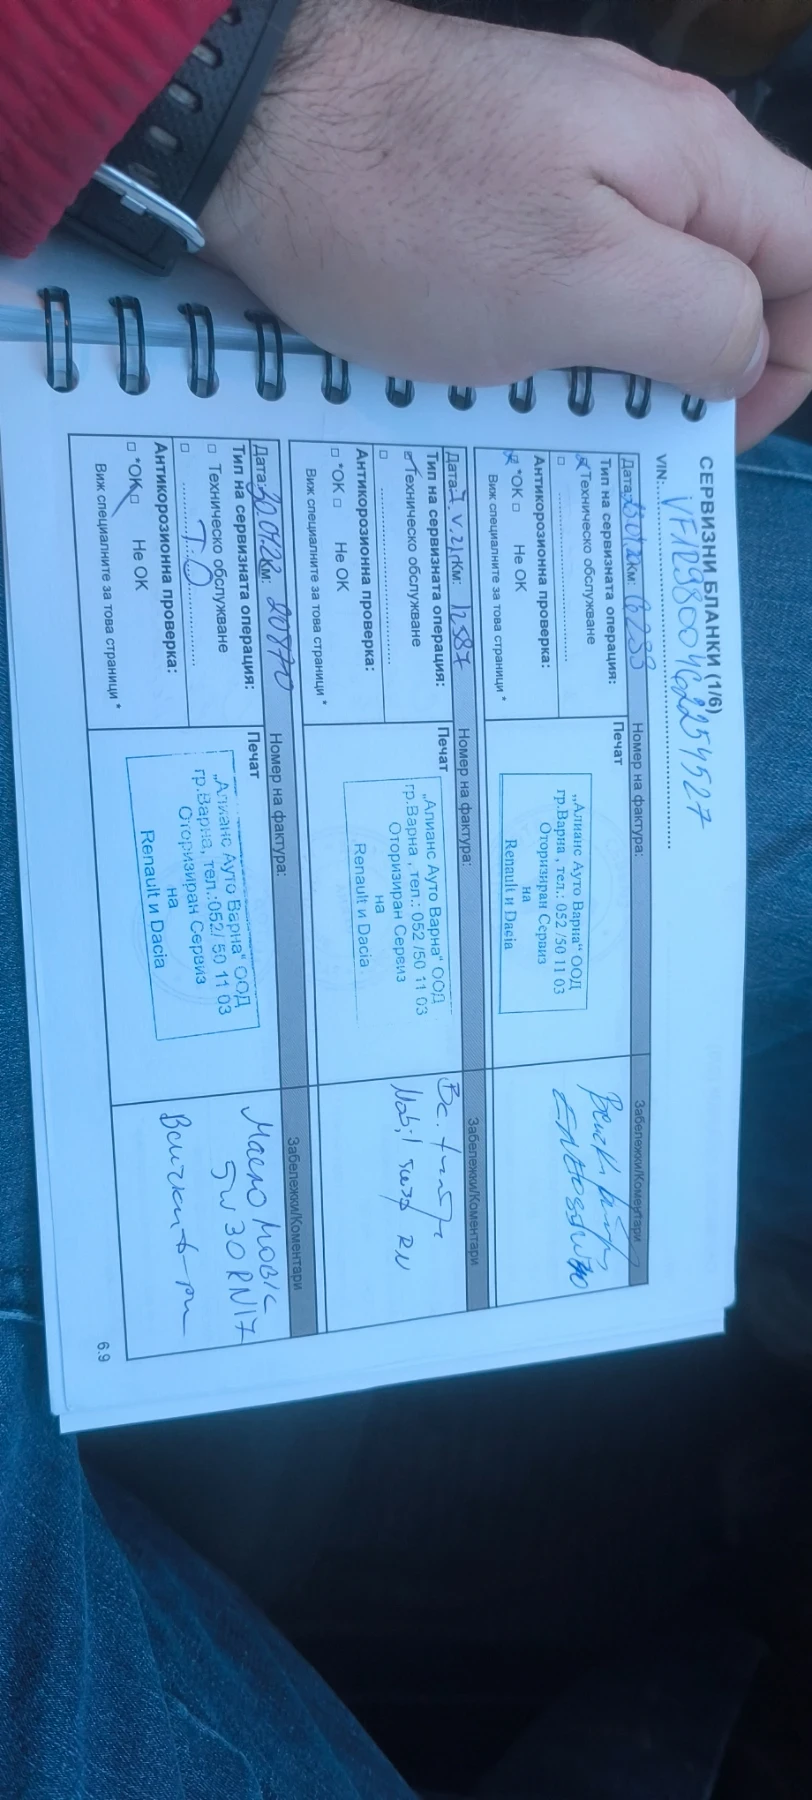 СЕРВИЗНИ БЛАНКИ (1/6)
VIN:
Дата: Км: Номер на фактура: Забележки/Коментари
Тип на сервизната операция: Печат
Техническо обслужване
Антикорозионна проверка:
*ОК Не ОК
Виж специалните за това страници *
„Алианс Ауто Варна“ ООД
гр.Варна , тел.: 052 /50 11 03
Оторизиран Сервиз
на
Renault и Dacia
Дата: Км: 12587 Номер на фактура: Забележки/Коментари
Тип на сервизната операция: Печат
Техническо обслужване
Антикорозионна проверка:
*ОК Не ОК
Виж специалните за това страници *
„Алианс Ауто Варна“ ООД
гр.Варна , тел.: 052 /50 11 03
Оторизиран Сервиз
на
Renault и Dacia
Mobil RN
Дата: Км: 20870 Номер на фактура: Забележки/Коментари
Тип на сервизната операция: Печат
Техническо обслужване
Т.О
Антикорозионна проверка:
*ОК Не ОК
Виж специалните за това страници *
„Алианс Ауто Варна“ ООД
гр.Варна, тел.:052/ 50 11 03
Оторизиран Сервиз
на
Renault и Dacia
Масло
5W30 RN17
6.9